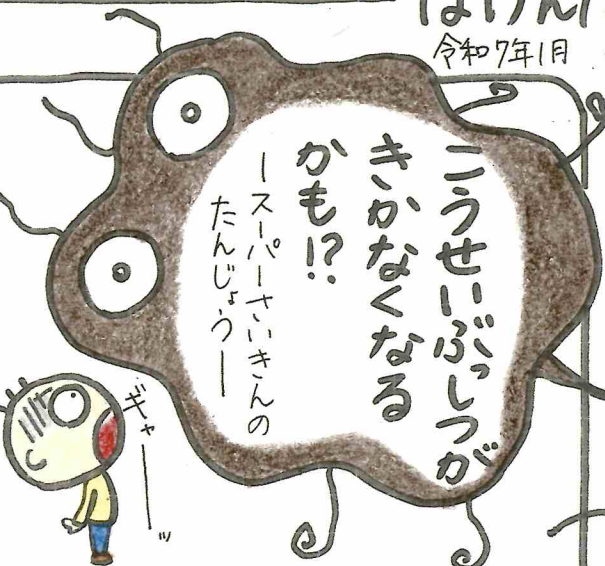 令和7年1月
こうせいぶっしつが
きかなくなる
かも!?
ースーパーさいきんの
たんじょうー
ギャーーッ